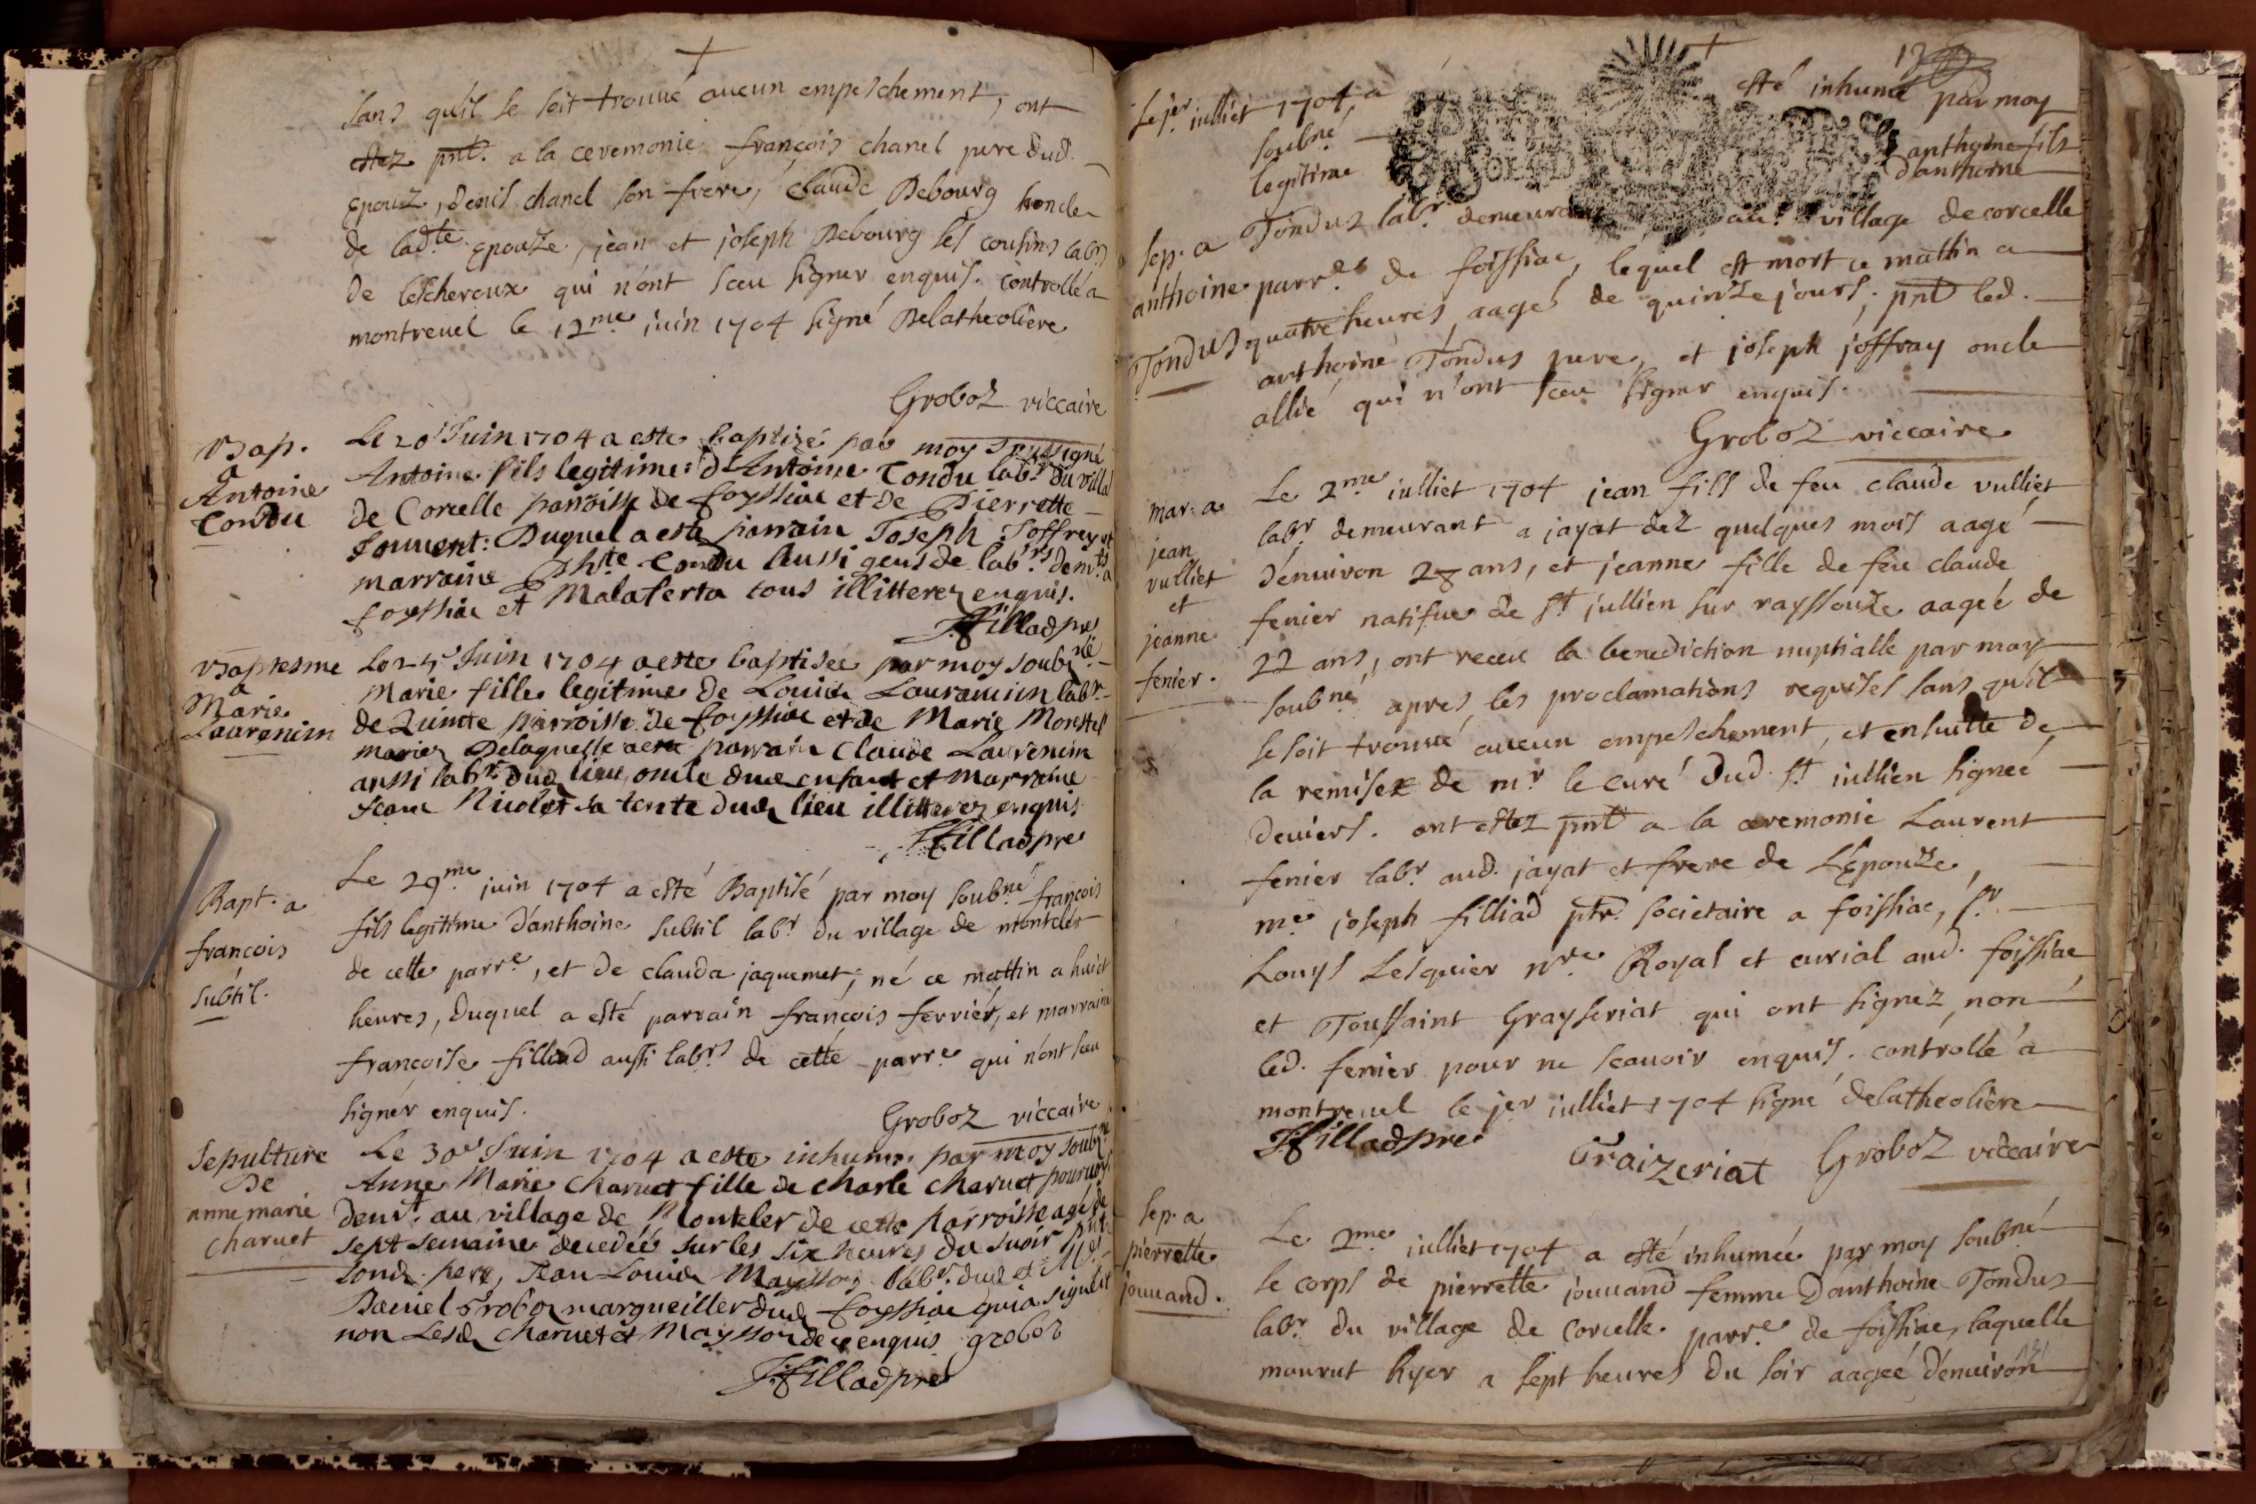 sans qu'il se soit trouvé aucun empeschement, ont
estez pnt. a la ceremonie françois chanel pere dud.
Epouz, denis chanel son frere, claude Debourg honcle
de ladte. Epouze, jean et joseph Debourg ses cousins labrs
de leschereux qui n'ont sceu signer enquis. controllé a
montrevel le 12me juin 1704 signé Delatheoliere
Groboz viccaire
Bap.
a
Antoine
Tondu
Le 20e Juin 1704 a este baptizé par moy soussigné
Antoine fils legitime d'Antoine Tondu labr. du villa
de Corcelle parroisse de foyssiac et de Pierrette
Jouvent: Duquel a esté parrain Joseph Joffrey et
marraine Phte Tondu Aussi gens de labrs demts a
foyssia et Malaferta tous illitterez enquis.
JFilliad pre
Baptesme
a
Marie
Laurencin
Le 24e Juin 1704 a este baptisée par moy soubné
Marie fille legitime de Louis Laurancin labr.
de Quinte parroisse de foyssiac et de Marie Morestel
mariez Delaquelle a este parrain Claude Laurencin
aussi labr. dud. lieu oncle dud. enfant et marraine
Jeane Nicolet sa tente dud. lieu illitterez enquis
JFilliad pre
Bapt. a
francois
subtil.
Le 29me juin 1704 a esté Baptisé par moy soubné françois
fils legitime d'anthoine subtil labr du village de montcler
de cette parre, et de clauda jaquemet; né ce mattin a huict
heures, duquel a esté parrain françois ferrier, et marraine
françoise filliad aussi labrs de cette parre qui n'ont sceu
signer enquis.
Groboz viccaire
Sepulture
De
anne marie
charvet
Le 30e Juin 1704 a este inhume par moy soubné
Anne Marie Charvet fille de Charle Charvet
demt. au village de Montcler de cette parroisse agée de
sept semaine decedée sur les six heures du suoir pnt.
sond. pere, Jean Louis Mayssoz labr. dud. et Me
Daniel Groboz margueiller dud. foyssiac qui a signé
non lesd. Charvet et Mayssoz de ce enquis Groboz
JFilliad pre
12
Le jer. julliet 1704 a esté inhumé par moy
soubné anthoine fils
legitime d'anthoine
Sep. a
anthoine
Tondus
Tonduz labr. demeurant au village de corcelle
parr.e de foissiac, lequel est mort ce mattin a
quatre heures, aagé de quinze jours; pnt led.
anthoine Tondus pere, et joseph joffray oncle
allié qui n'ont sceu signer enquis.
Groboz viccaire
mar. a
jean
vulliet
et
jeanne
fenier.
Le 2me julliet 1704 jean fils de feu claude vulliet
labr demeurant a jayat dez quelques mois aagé
d'environ 28 ans, et jeanne fille de feu claude
fenier natifve de st jullien sur rayssouze aageé de
22 ans, ont receu la benediction nuptialle par moy
soubné apres les proclamations requises sans qu'il
se soit trouvé aucun empeschement, et ensuitte de
la remise de mr le curé dud. st jullien signeé
deviers. ont estez pnt a la ceremonie Laurent
fenier labr aud. jayat et frere de L'Epouze,
me joseph filliad ptr. societaire a foissiac, sr
Louys Lesquier nre Royal et curial aud. foissiac
et Toussaint Grayseriat qui ont signez, non
led. fenier pour ne scavoir enquis. controllé a
montrevel le jer julliet 1704 signé delatheoliere
JFilliad pre
Graizeriat
Groboz viccaire
Sep. a
pierrette
jouvand.
Le 2me julliet 1704 a esté inhumeé par moy soubné
le corps de pierrette jouvand femme d'anthoine Tondus
labr du village de corcelle parre de foissiac, laquelle
mourut hyer a sept heures du soir aageé d'environ